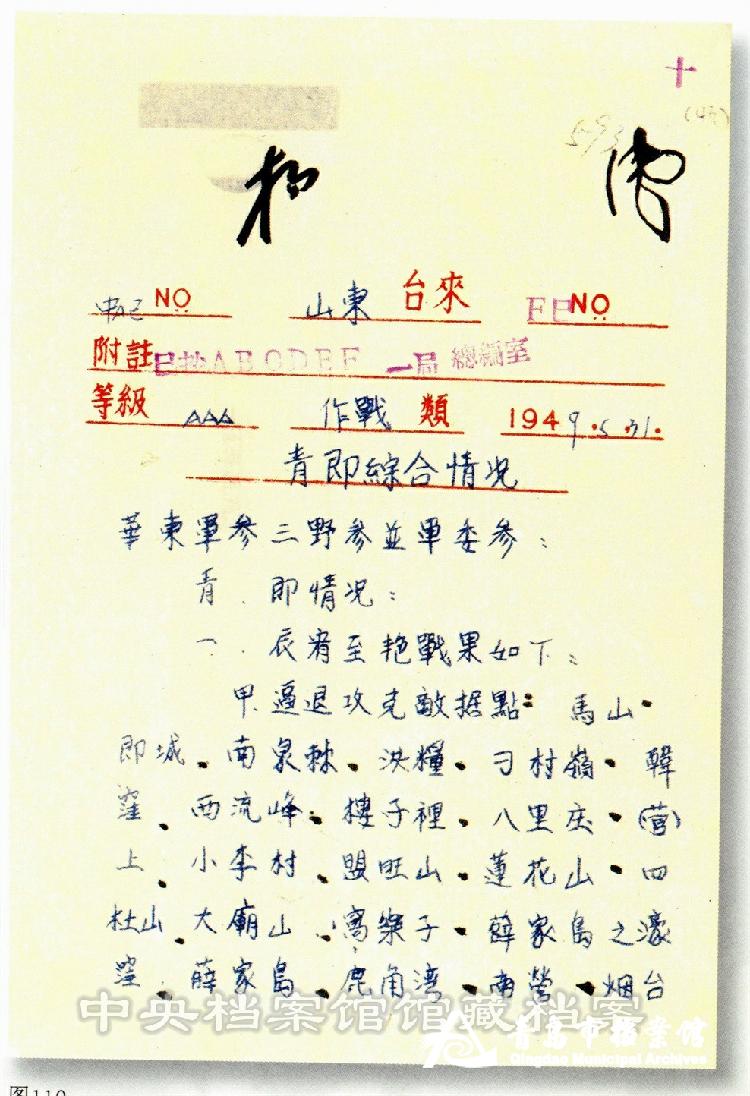 十
593
NO 山東 台來 FE NO
附註 已抄ABCDEF 一局 總編室
等級 AAA 作戰 類 1949.5.31.
青即綜合情况
華東軍參三野參並軍委參:
青.即情况:
一.辰宥至艳戰果如下:
甲.逼退攻克敵据點:馬山.
即城.南泉.洪糧.刁村嶺.韓
窪.西流峰.樓子裡.八里庄.(营)
上.小李村.盟旺山.蓮花山.四
杜山.大廟山.窩樂子.薛家島之濠
窪.薛家島.鹿角湾.南营.烟台
中央档案馆馆藏档案
青岛市档案馆
Qingdao Municipal Archives
图110